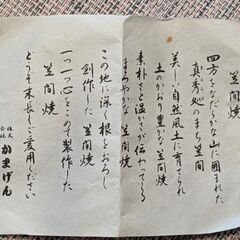 笠間焼
四方をなだらかな山に囲まれた
真秀処のまち笠間
美しい自然風土に育てられ
土のかおり豊かな笠間焼
素朴さと温かさが伝わってくる
まろやかな笠間焼
この地に深く根をおろし
創作した笠間焼
一つ一つ心をこめて製作した
笠間焼
どうぞ末長くご愛用ください
株式会社かまげん